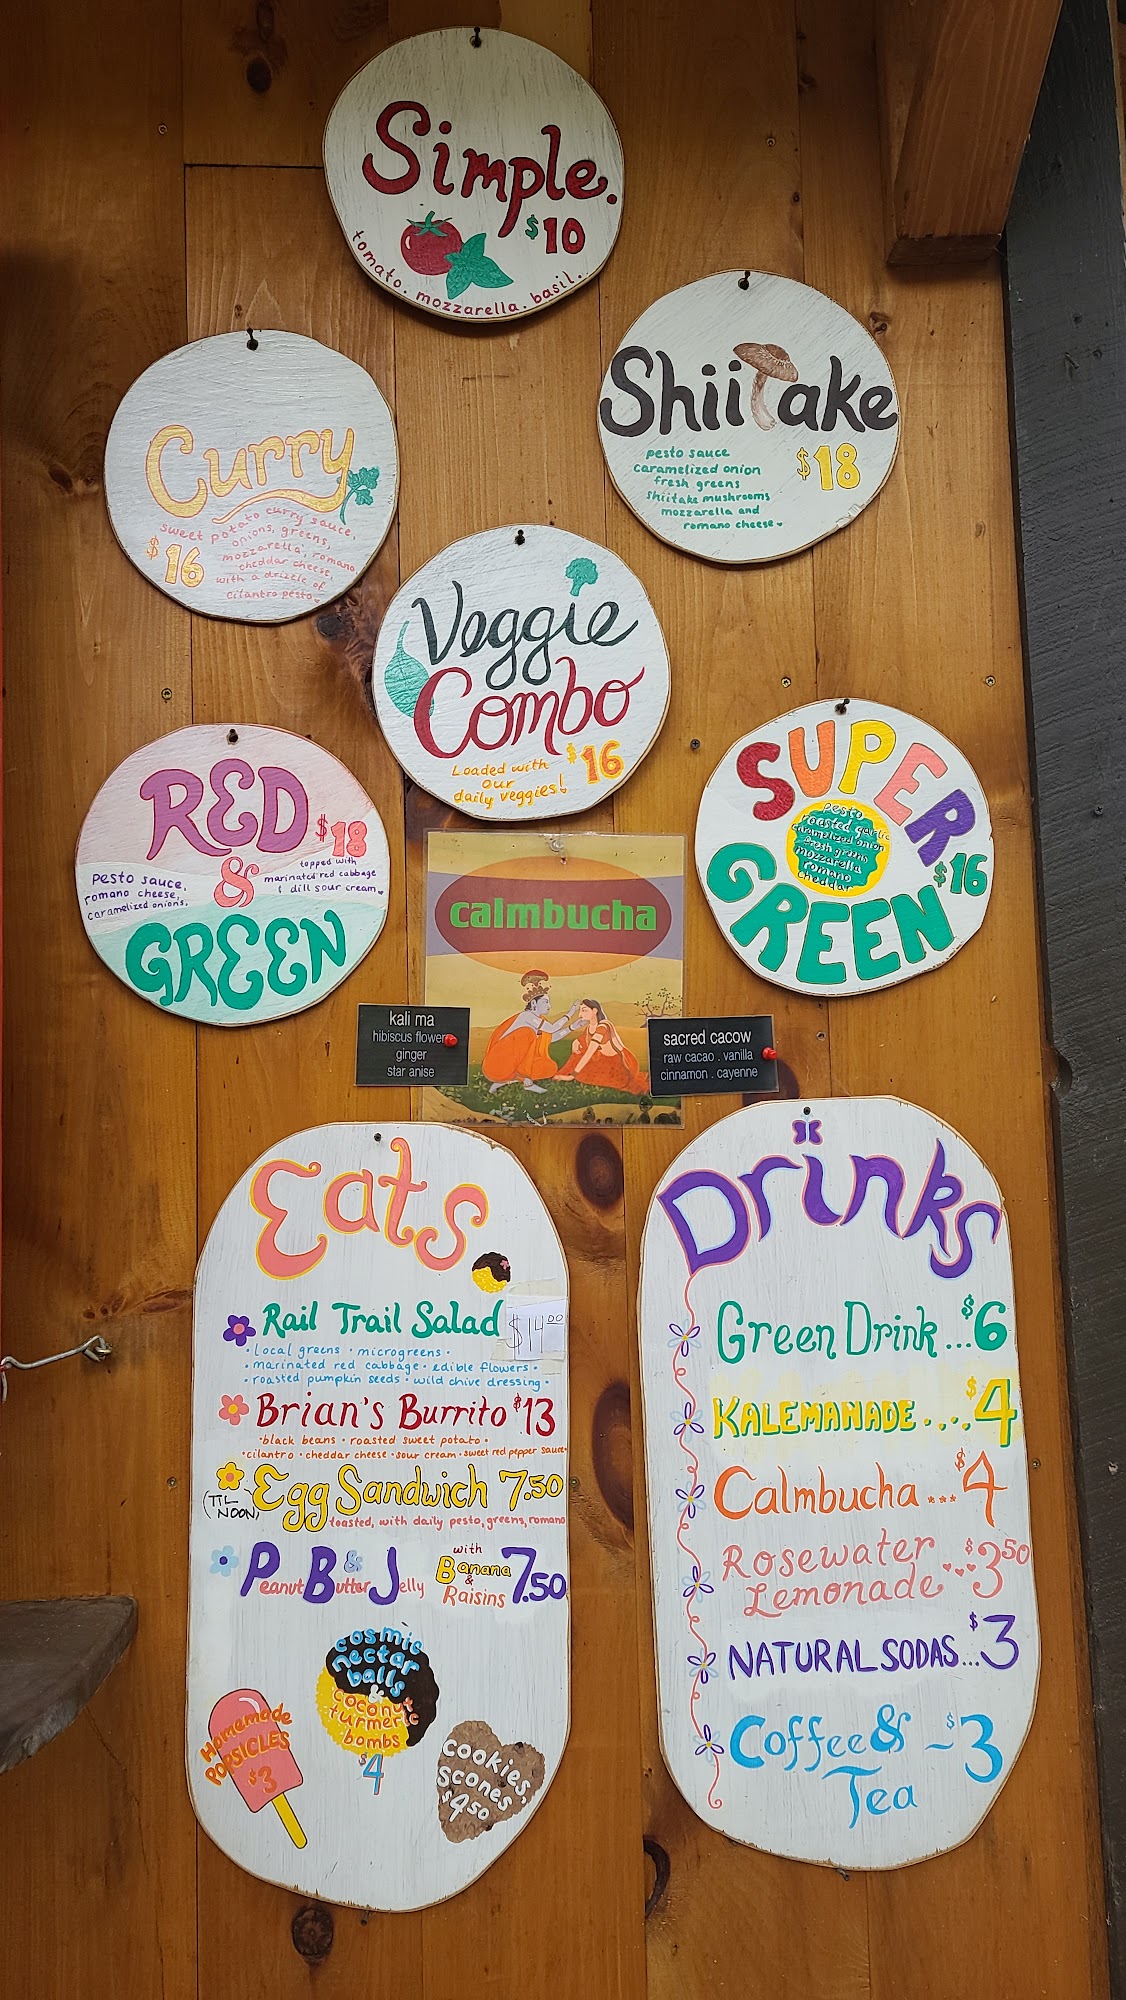 Simple.
$10
tomato. mozzarella. basil.
Shiitake
pesto sauce
caramelized onion
fresh greens
shiitake mushrooms
mozzarella and
romano cheese
$18
Curry
sweet potato curry sauce,
onions, greens,
mozzarella, romano
cheddar cheese,
with a drizzle of
cilantro pesto
$16
Veggie
Combo
Loaded with
our
daily veggies!
$16
RED
$18
&
GREEN
pesto sauce,
romano cheese,
caramelized onions,
topped with
marinated red cabbage
& dill sour cream
SUPER
GREEN
pesto
roasted garlic
caramelized onion
fresh greens
mozzarella
romano
cheddar
$16
calmbucha
kali ma
hibiscus flower
ginger
star anise
sacred cacow
raw cacao . vanilla
cinnamon . cayenne
Eats
Rail Trail Salad $14.00
• local greens • microgreens •
• marinated red cabbage • edible flowers •
• roasted pumpkin seeds • wild chive dressing •
Brian's Burrito $13
• black beans • roasted sweet potato •
• cilantro • cheddar cheese • sour cream • sweet red pepper sauce
(TIL
NOON)
Egg Sandwich 7.50
toasted, with daily pesto, greens, romano
Peanut Butter & Jelly
with
Banana
&
Raisins
7.50
cosmic
nectar
balls
&
coconut
turmeric
bombs
$4
Homemade
POPSICLES
$3
cookies,
scones
$4.50
Drinks
Green Drink...$6
KALEMANADE....$4
Calmbucha...$4
Rosewater
Lemonade...$3.50
NATURAL SODAS...$3
Coffee & ~$3
Tea